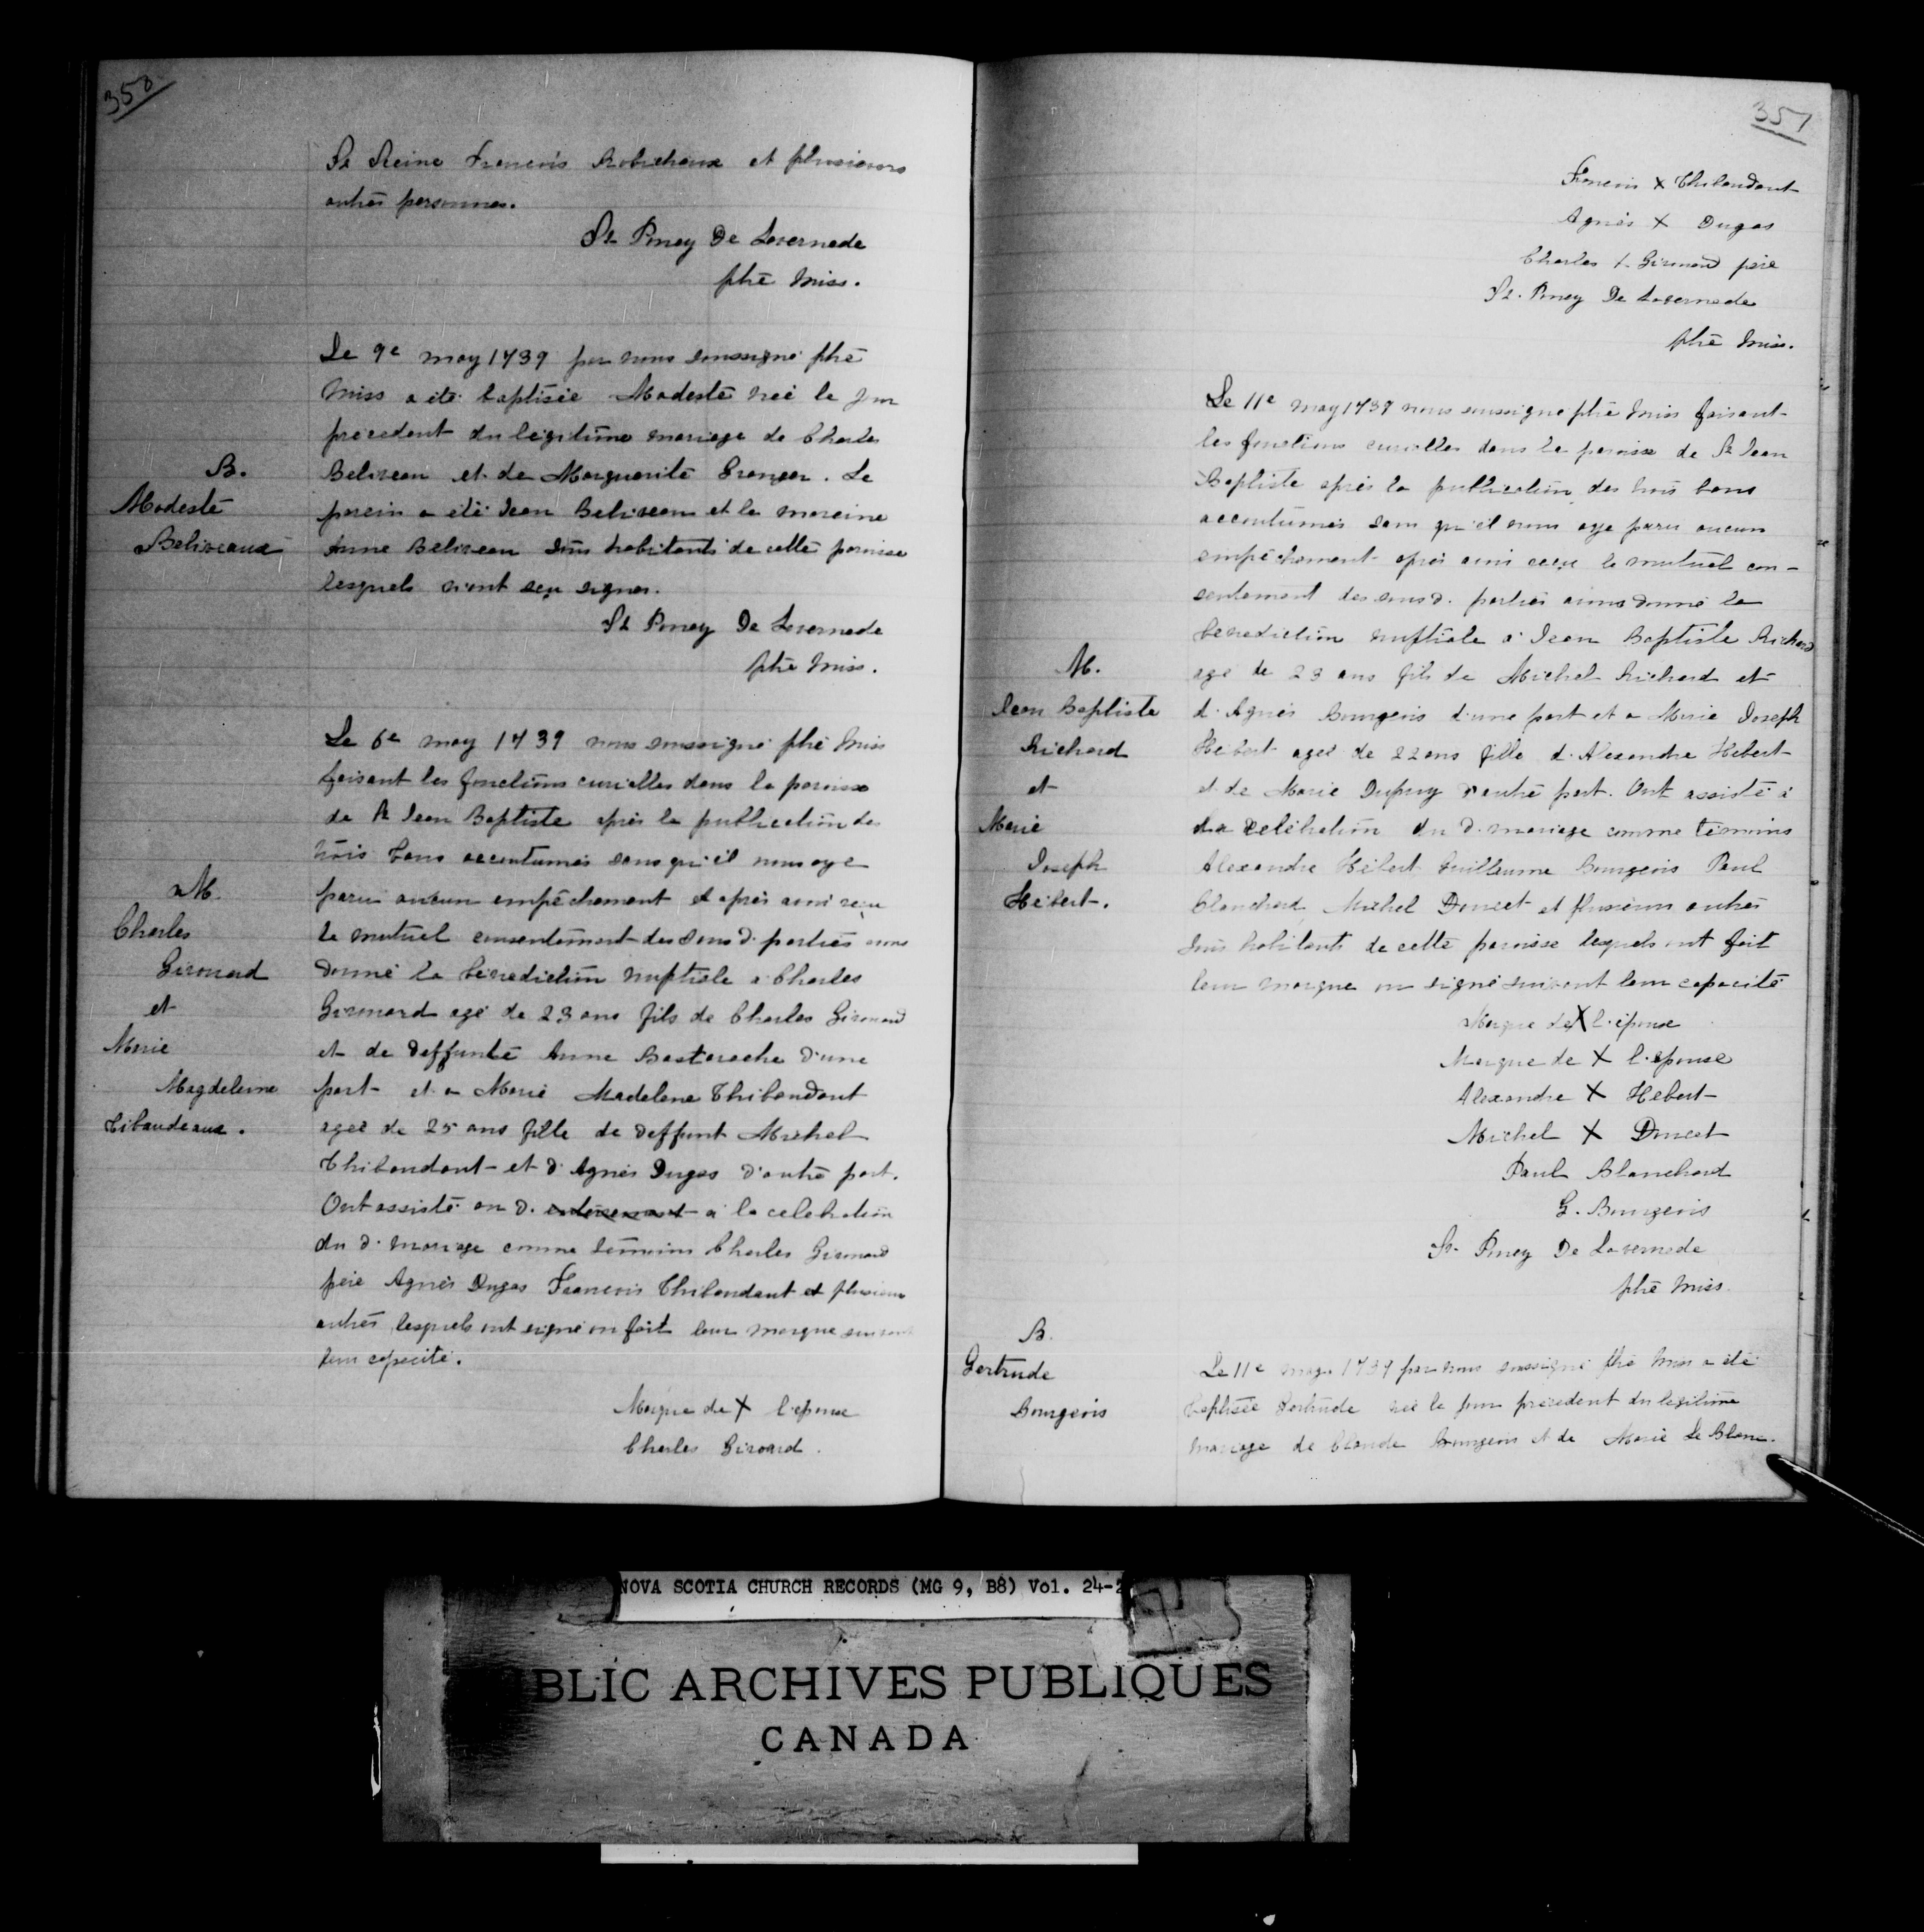 350
St Seine Francois Robichaux et plusieurs
autres personnes.
St Poncy De Lavernede
ptre Miss.
Le 9e may 1739 par nous soussigné ptre
Miss a été baptisée Modeste née le jour
precedent du legitime mariage de Charles
B.
Beliveau et de Marguerite Granger. Le
Modeste
parein a été Jean Beliveau et la mareine
Beliveaux
Anne Beliveau tous habitants de cette paroisse
lesquels n'ont sçu signer.
St Poncy De Lavernede
ptre Miss.
Le 6e may 1739 nous soussigné ptre Miss
faisant les fonctions curialles dans la paroisse
de St Jean Baptiste après la publication des
trois bans accoutumés sans qu'il nous aye
M.
paru aucun empêchement et après avoir reçu
Charles
le mutuel consentement des sous d. parties avons
Girouard
donné la bénédiction nuptiale a Charles
et
Girouard agé de 23 ans fils de Charles Girouard
Marie
et de deffunte Anne Bastarache d'une
Magdeleine
part et a Marie Madelene Thibaudaut
Tibaudeaux.
agée de 25 ans fille de deffunt Michel
Thibaudaut et d'Agnès Dugas d'autre part.
Ont assisté au d. enterrement a la celebration
du d. mariage comme témoins Charles Girouard
père Agnès Dugas Francois Thibaudaut et plusieurs
autres lesquels ont signé ou fait leur marque suivant
leur capacité.
Marque de X l'epouse
Charles Girouard.
351
Francois X Thibaudaut
Agnès X Dugas
Charles X Girouard père
St. Poncy De Lavernede
ptre Miss.
Le 11e may 1739 nous soussigné ptre Miss faisant
les fonctions curialles dans la paroisse de St Jean
Baptiste après la publication des trois bans
accoutumés sans qu'il nous aye paru aucun
empêchement après avoir reçu le mutuel con-
sentement des sous d. parties avons donné la
benediction nuptiale a Jean Baptiste Richard
M.
agé de 23 ans fils de Michel Richard et
Jean Baptiste
d'Agnès Bourgeois d'une part et a Marie Joseph
Richard
Hebert agée de 22 ans fille d'Alexandre Hebert
et
et de Marie Dupuy d'autre part. Ont assisté à
Marie
la celébration du d. mariage comme témoins
Joseph
Alexandre Hébert Guillaume Bourgeois Paul
Hébert.
Blanchard Michel Doucet et plusieurs autres
tous habitants de cette paroisse lesquels ont fait
leur marque ou signé suivant leur capacité
Marque de X l'épouse
Marque de X l'epouse
Alexandre X Hebert
Michel X Doucet
Paul Blanchard
G. Bourgeois
St. Poncy De Lavernede
ptre Miss.
B.
Gertrude
Le 11e may 1739 par nous soussigné ptre Miss a été
Bourgeois
baptisée Gertrude née le jour precedent du legitime
mariage de Claude Bourgeois et de Marie Le Blanc.
NOVA SCOTIA CHURCH RECORDS (MG 9, B8) Vol. 24-2
BLIC ARCHIVES PUBLIQUES
CANADA